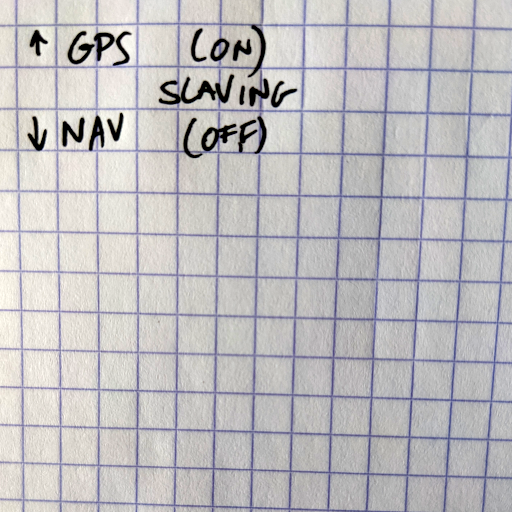 ↑ GPS (ON)
SLAVING
↓ NAV (OFF)